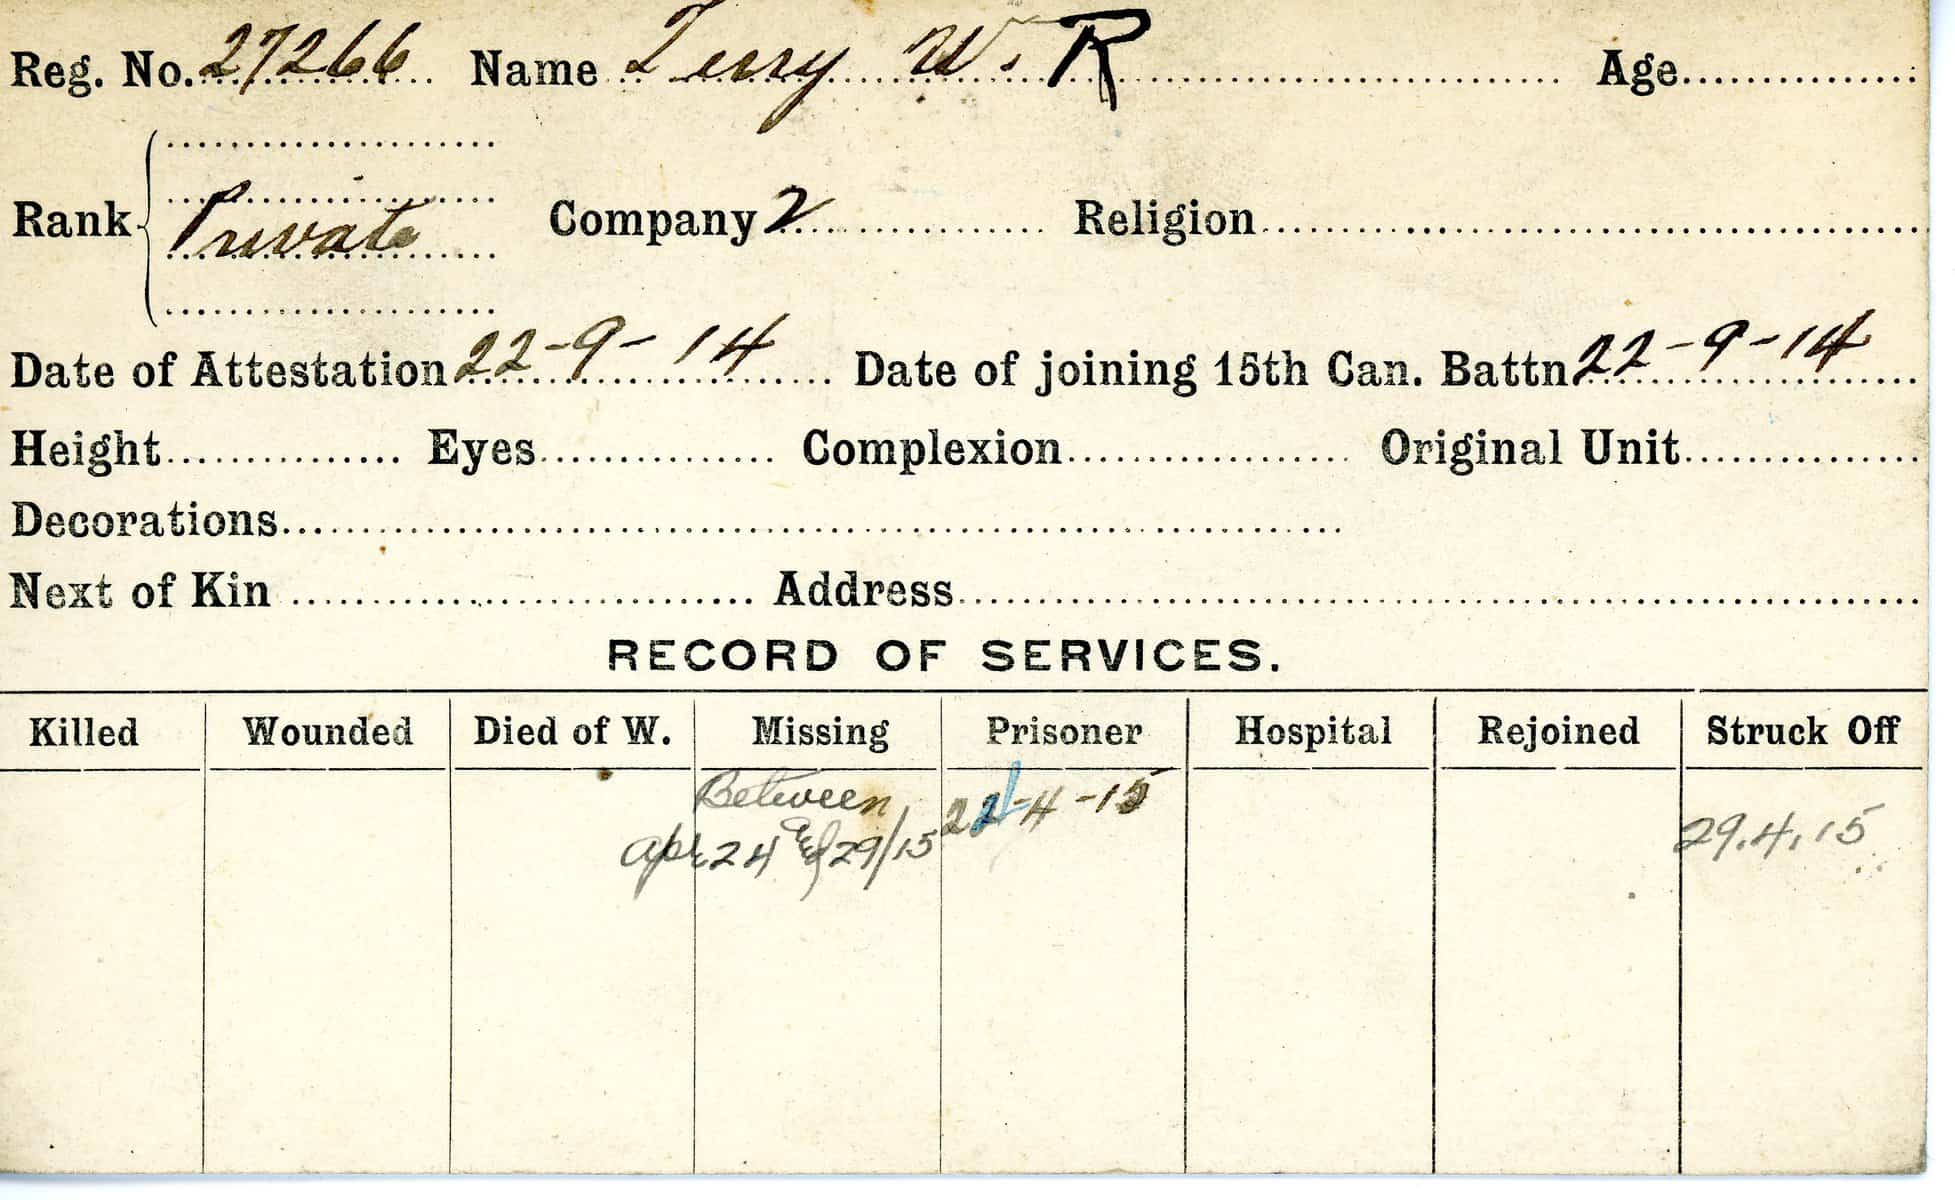 Reg. No. 27266 Name Terry W. R Age
Rank Private Company 2 Religion
Date of Attestation 22-9-14 Date of joining 15th Can. Battn. 22-9-14
Height Eyes Complexion Original Unit
Decorations
Next of Kin Address
RECORD OF SERVICES.
Killed Wounded Died of W. Missing Prisoner Hospital Rejoined Struck Off
Between
Apr 24 & 29/15 22-4-15 29.4.15